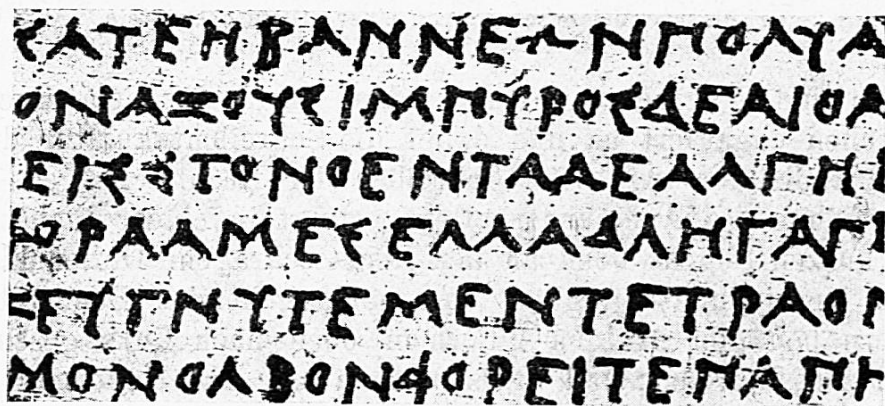 ΣΑΤΕΗΒΑΝΝΕΩΝΠΟΛΥΑ
ΟΝΑΞΟΥΣΙΜΠΥΡΟΣΔΕΑΙΘΑ
ΕΙΣΣΤΟΝΟΕΝΤΑΔΕΑΛΓΗΕ
ΦΟΡΑΑΜΕΣΕΛΛΑΔΑΗΓΑΓΕ
ΖΕΥΓΝΥΤΕΜΕΝΤΕΤΡΑΟΡ
ΜΟΝΟΛΒΟΝΦΟΡΕΙΤΕΠΑΠΗ